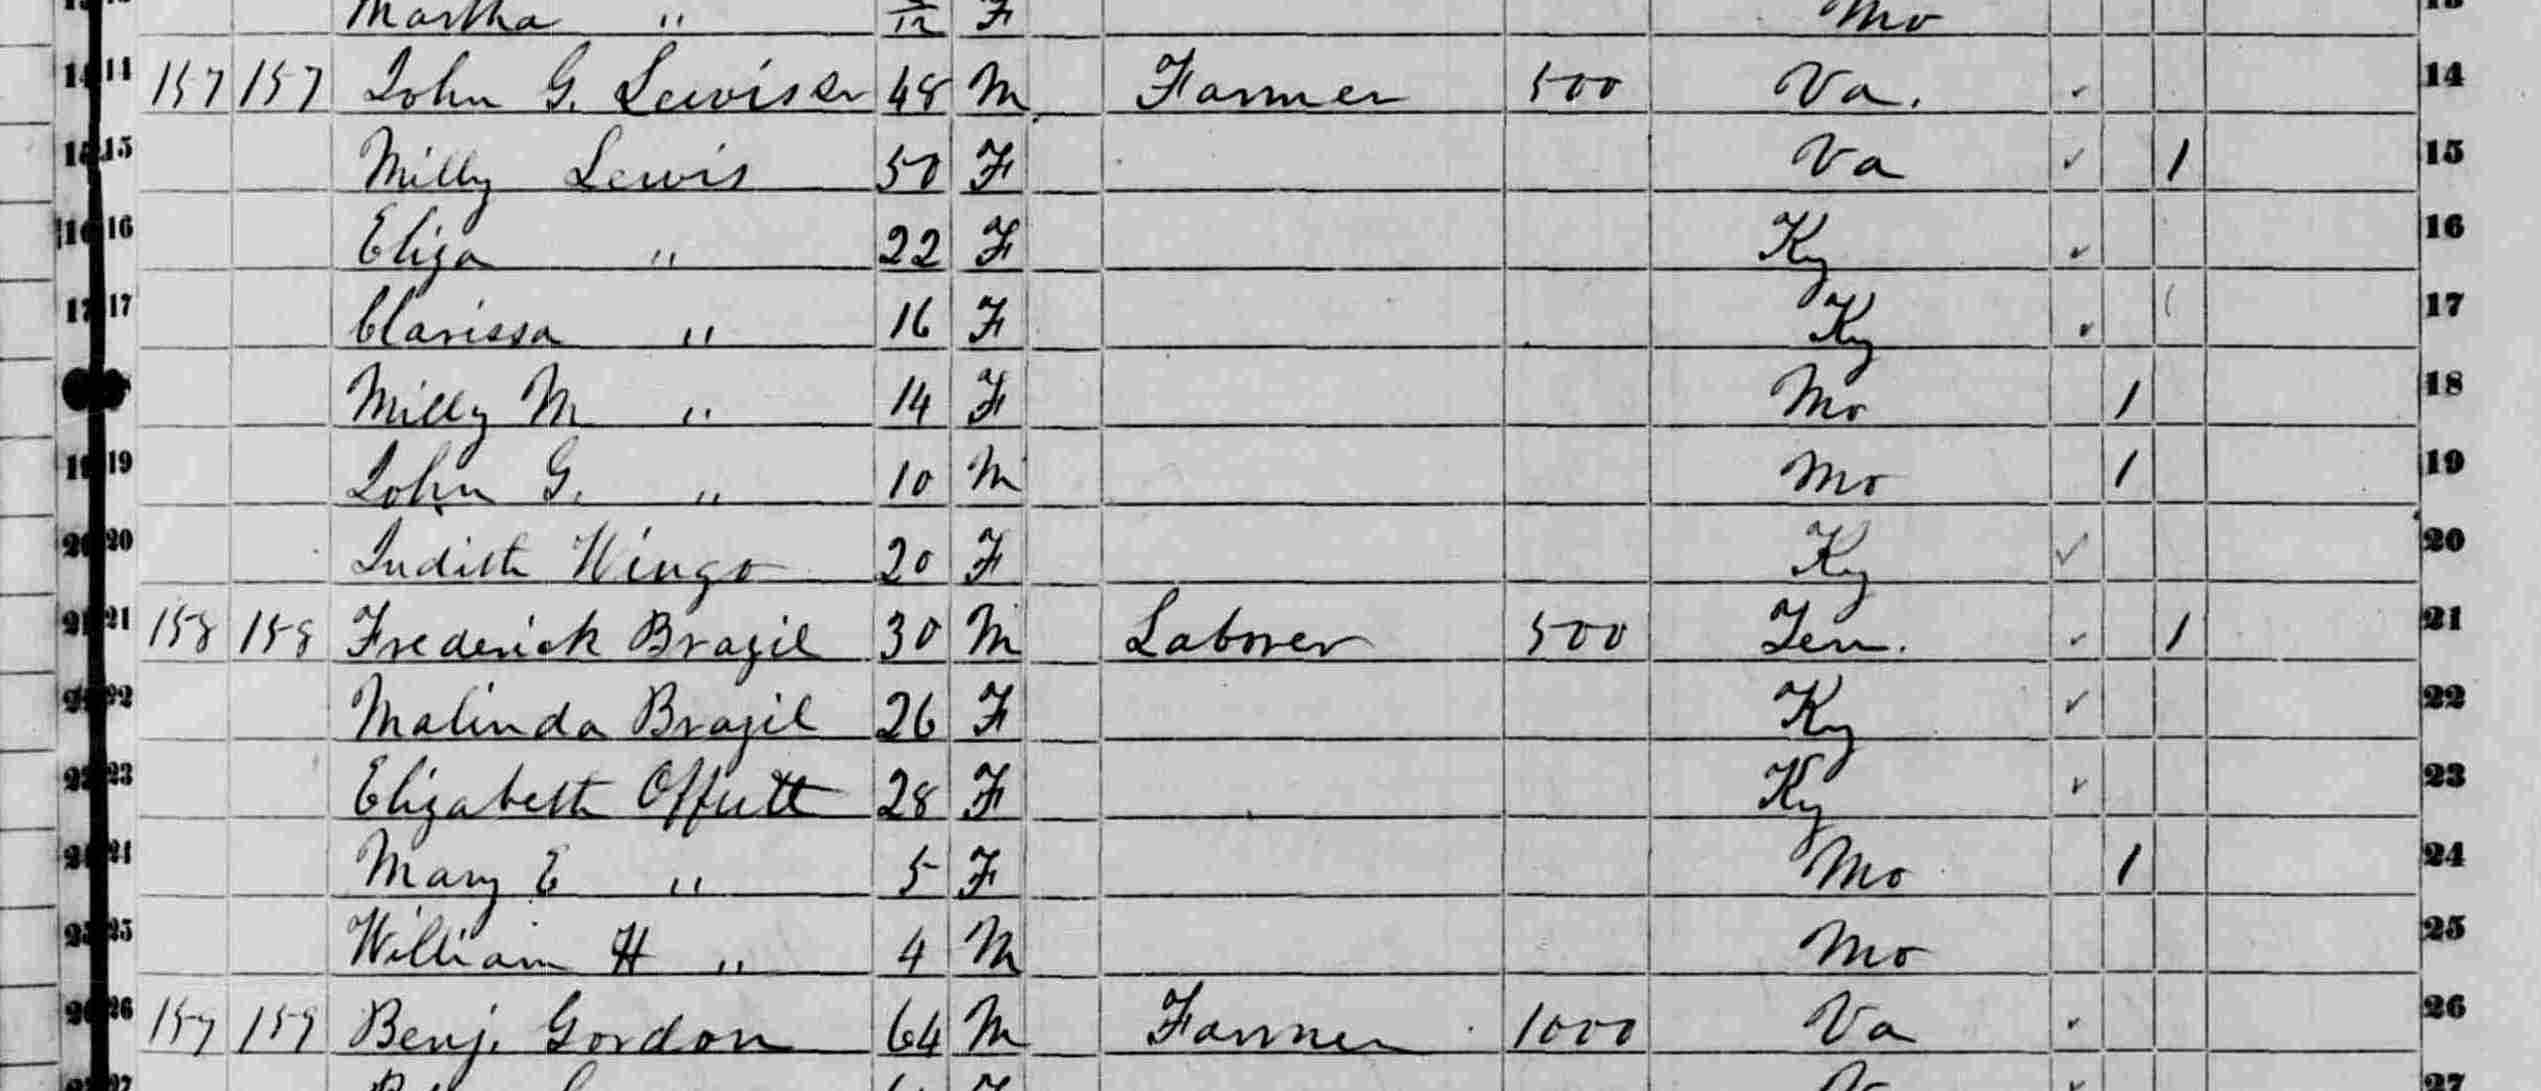 Martha " /12 F Mo
14 14 157 157 John G. Lewis Sr 48 M Farmer 500 Va. 14
15 15 Milly Lewis 50 F Va ✓ 1 15
16 16 Eliza " 22 F Ky ✓ 16
17 17 Clarissa " 16 F Ky ✓ 17
Milly M " 14 F Mo 1 18
19 19 John G. " 10 M Mo 1 19
20 20 Judith Wingo 20 F Ky ✓ 20
21 21 158 158 Frederick Brazil 30 M Laborer 500 Ten. ✓ 1 21
22 22 Malinda Brazil 26 F Ky ✓ 22
23 23 Elizabeth Offutt 28 F Ky ✓ 23
24 24 Mary E " 5 F Mo 1 24
25 25 William H " 4 M Mo 25
26 26 159 159 Benj. Gordon 64 M Farmer 1000 Va ✓ 26
27 27